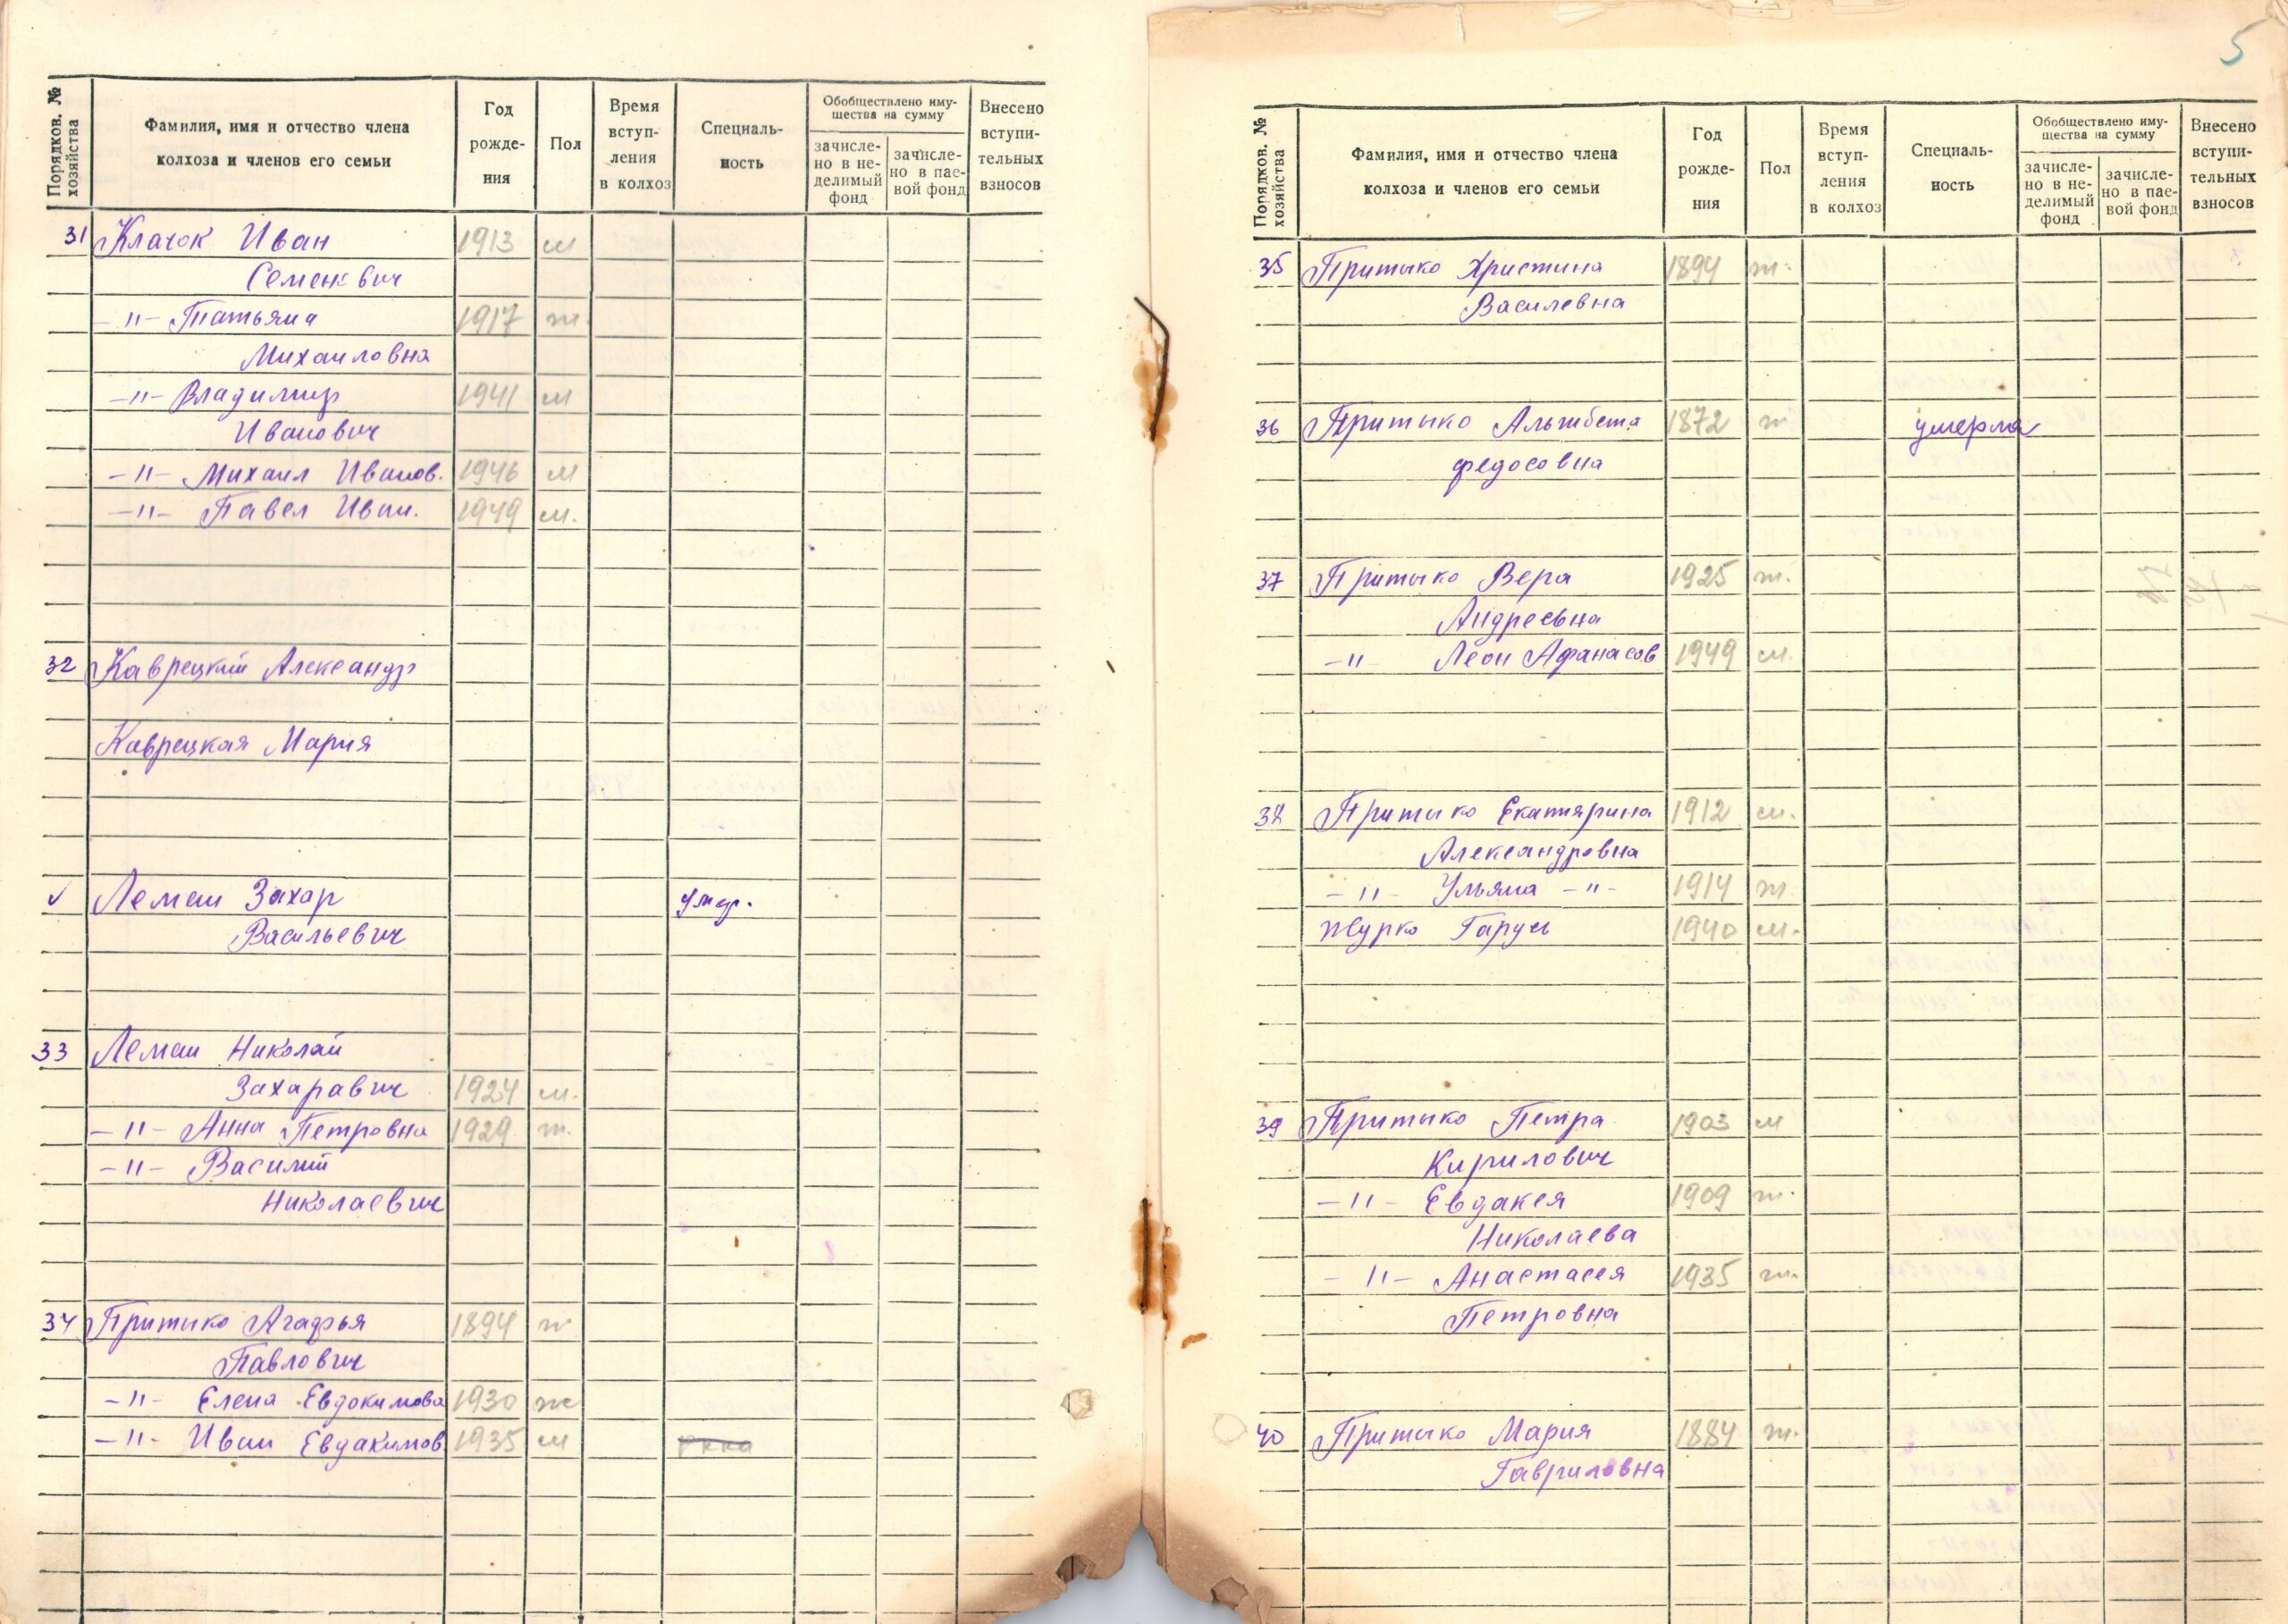 Порядков. №
хозяйства
Фамилия, имя и отчество члена
колхоза и членов его семьи
Год
рожде-
ния
Пол
Время
вступ-
ления
в колхоз
Специаль-
ность
Обобществлено иму-
щества на сумму
зачисле-
но в не-
делимый
фонд
зачисле-
но в пае-
вой фонд
Внесено
вступи-
тельных
взносов
31 Клачок Иван 1913 м
Семенович
-"- Татьяна 1917 ж.
Михаиловна
-"- Владимир 1941 м
Иванович
-"- Михаил Иванов. 1946 м
-"- Павел Иван. 1949 м.
32 Каврецкий Александр
Каврецкая Мария
✓ Лемеш Захар умер.
Васильевич
33 Лемеш Николай
Захаравич 1924 м.
-"- Анна Петровна 1929 ж.
-"- Василий
Николаевич
34 Притыко Агафья 1894 ж
Павлович
-"- Елена Евдокимова 1930 ж
-"- Иван Евдакимов 1935 м
5
Порядков. №
хозяйства
Фамилия, имя и отчество члена
колхоза и членов его семьи
Год
рожде-
ния
Пол
Время
вступ-
ления
в колхоз
Специаль-
ность
Обобществлено иму-
щества на сумму
зачисле-
но в не-
делимый
фонд
зачисле-
но в пае-
вой фонд
Внесено
вступи-
тельных
взносов
35 Притыко Христина 1894 ж.
Василевна
36 Притыко Альжбета 1872 ж умерла
федосовна
37 Притыко Вера 1925 ж.
Андреевна
-"- Леон Афанасов 1949 м.
38 Притыко Екатярина 1912 м.
Александровна
-"- Ульяна -"- 1914 ж.
Журко Гарусь 1940 м.
39 Притыко Петра 1903 м
Кирилович
-"- Евдакея 1909 ж.
Николаева
-"- Анастасея 1935 ж.
Петровна
40 Притыко Мария 1884 ж.
Гавриловна